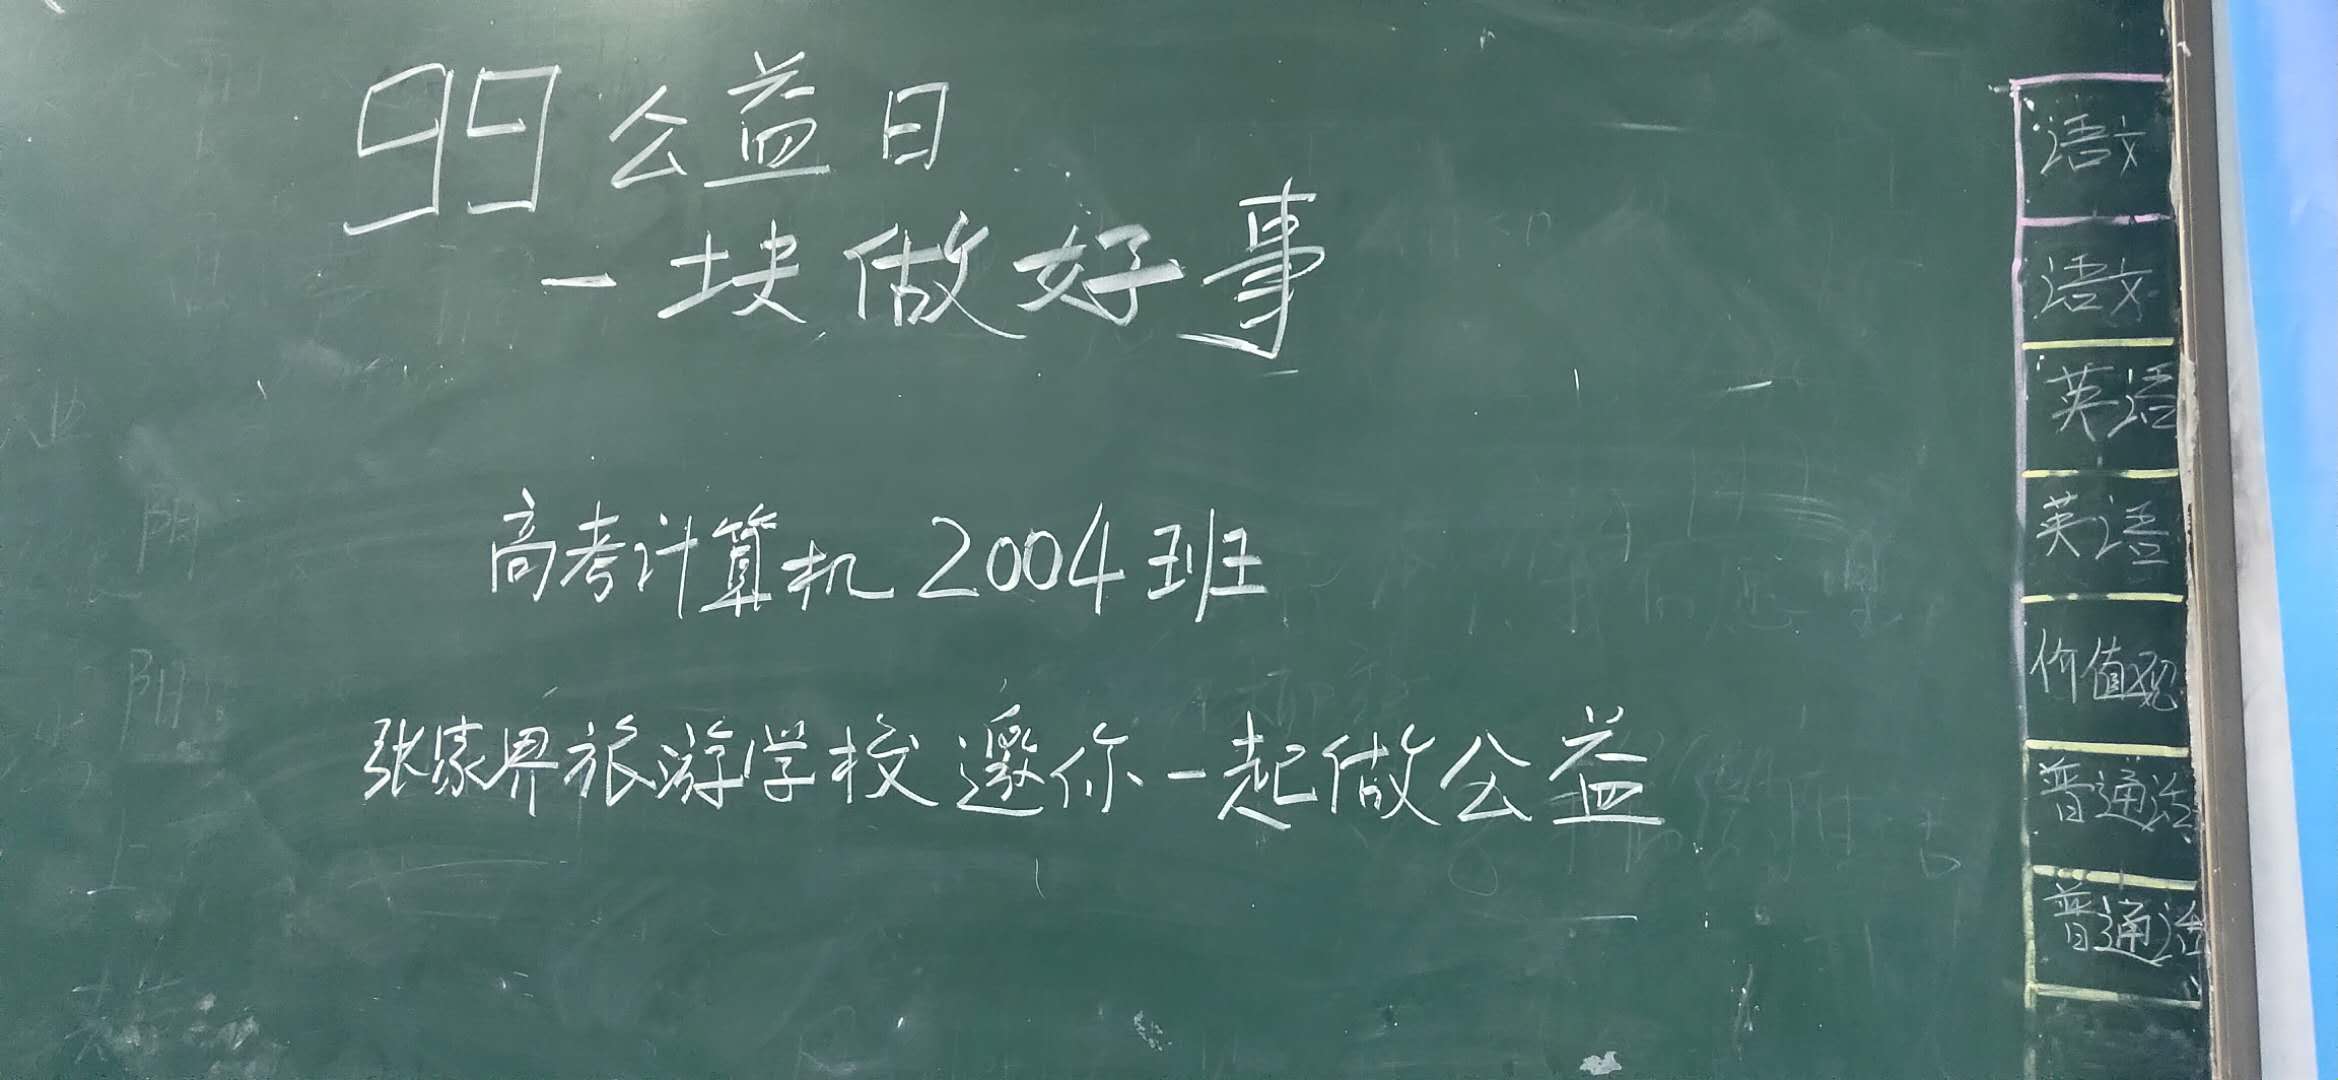 99公益日
一块做好事
高考计算机2004班
张家界旅游学校邀你一起做公益
语文
语文
英语
英语
价值观
普通话
普通话